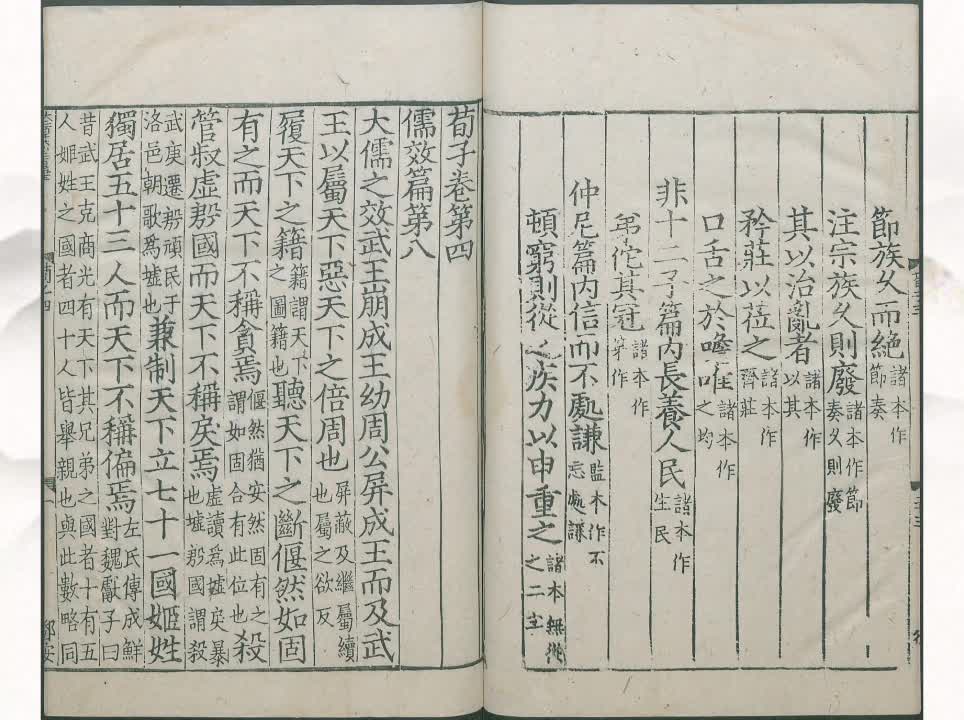 節族乆而絶諸本作節奏
注宗族乆則廢諸本作節奏乆則廢
其以治亂者諸本作以其
矜莊以莅之諸本作齊莊
口舌之於噡唯諸本作唯之均
非十二子篇内長養人民諸本作生民
弟佗其冠諸本作弟作
仲尼篇内信而不處謙監本作不忘處謙
頓窮則從之疾力以申重之諸本無從之二字
荀子卷第四
儒效篇第八
大儒之效武王崩成王幼周公屏成王而及武
王以屬天下惡天下之倍周也屏蔽及繼屬續也屬之欲反
履天下之籍籍謂天下之圖籍也聽天下之斷偃然如固
有之而天下不稱貪焉偃然猶安然固有之謂如固合有此位也殺
管叔虚殷國而天下不稱戾焉虚讀為墟戾暴也墟殷國謂殺
武庚遷殷頑民于洛邑朝歌為墟也兼制天下立七十一國姬姓
獨居五十三人而天下不稱偏焉左氏傳成鱄對魏獻子曰
昔武王克商光有天下其兄弟之國者十有五人姬姓之國者四十人皆舉親也與此數略同